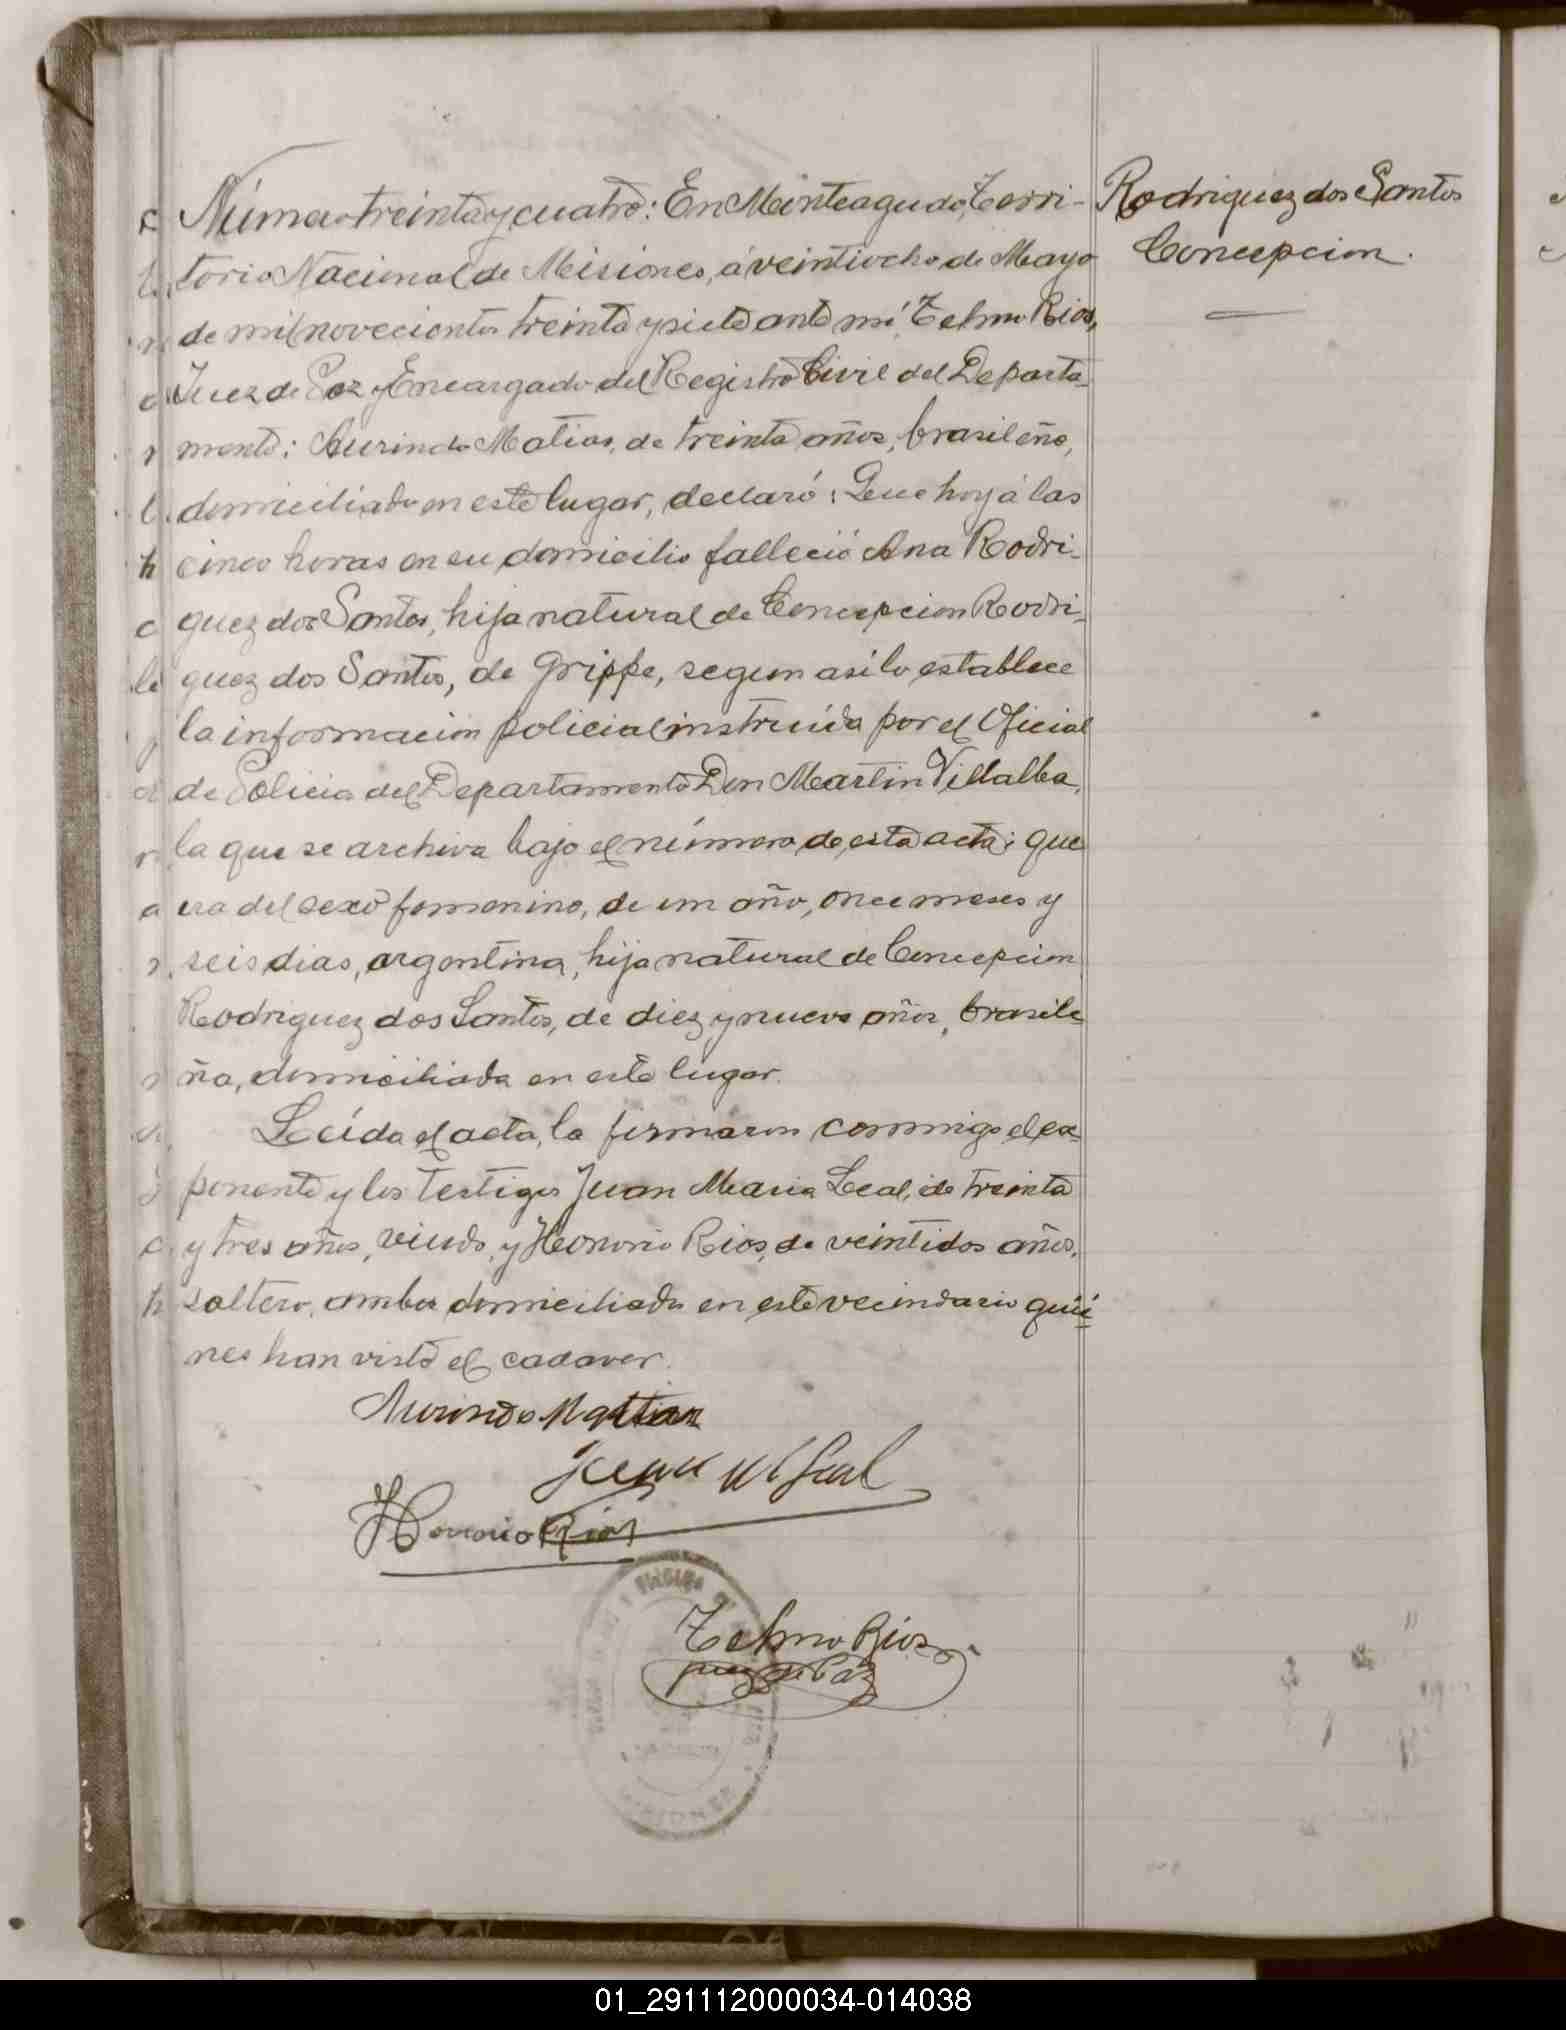 Número treinta y cuatro: En Monteagudo, Terri-
torio Nacional de Misiones, á veintiocho de Mayo
de mil novecientos treinta y siete ante mí, Telmo Rios,
Juez de Paz y Encargado del Registro Civil del Departa-
mento: Aurindo Matias, de treinta años, brasileño,
domiciliado en este lugar, declaró: Que hoy á las
cinco horas en su domicilio falleció Ana Rodri-
guez dos Santos, hija natural de Concepcion Rodri-
guez dos Santos, de grippe, segun asi lo establece
la información policial instruída por el Oficial
de Policia del Departamento Don Martin Villalba,
la que se archiva bajo el número de esta acta; que
era del sexo femenino, de un año, once meses y
seis dias, argentina, hija natural de Concepcion
Rodriguez dos Santos, de diez y nueve años, brasile-
ña, domiciliada en este lugar.
Leída el acta, la firmaron conmigo el ex-
ponente y los testigos Juan Maria Leal, de treinta
y tres años, viudo, y Honorio Rios, de veintidos años,
soltero, ambos domiciliados en este vecindario quié-
nes han visto el cadaver.
Aurindo Mattias
Juan M Leal
Honorio Rios
Telmo Rios
Juez de Paz
MISIONES
Rodriguez dos Santos
Concepcion.
01_291112000034-014038